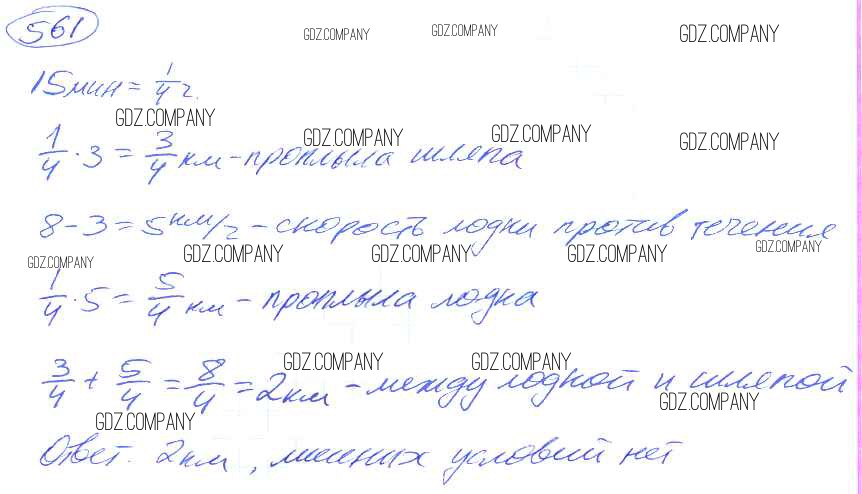 561
GDZ.COMPANY GDZ.COMPANY GDZ.COMPANY
15мин = 1/4 ч.
GDZ.COMPANY
GDZ.COMPANY GDZ.COMPANY GDZ.COMPANY
1/4 · 3 = 3/4 км - проплыла шляпа
8 - 3 = 5 км/ч - скорость лодки против течения
GDZ.COMPANY GDZ.COMPANY GDZ.COMPANY GDZ.COMPANY GDZ.COMPANY
1/4 · 5 = 5/4 км - проплыла лодка
GDZ.COMPANY GDZ.COMPANY
3/4 + 5/4 = 8/4 = 2км - между лодкой и шляпой
GDZ.COMPANY GDZ.COMPANY
Ответ. 2км, лишних условий нет